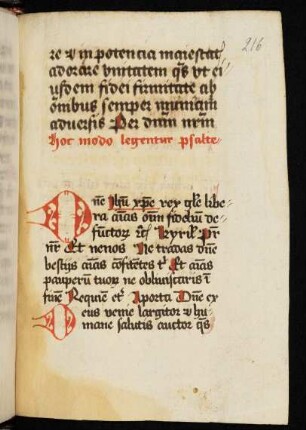 216
re et in potencia maiestat
adorare vnitatem qs vt ei
usdem fidei firmitate ab
omibus semper muniam
aduersis Per dnm nrm
Hoc modo legentur psalte
Dne Ihu xpe rex gle libe
ra aias oim fidelium de
functor Kyrie Pr
nr Et ne nos Ne tradas dne
bestijs aias cofitetes t Et aias
pauperu tuor ne obliuiscaris i
fine Requiem et A porta Dne ex
Deus venie largitor et hu
mane salutis auctor qs